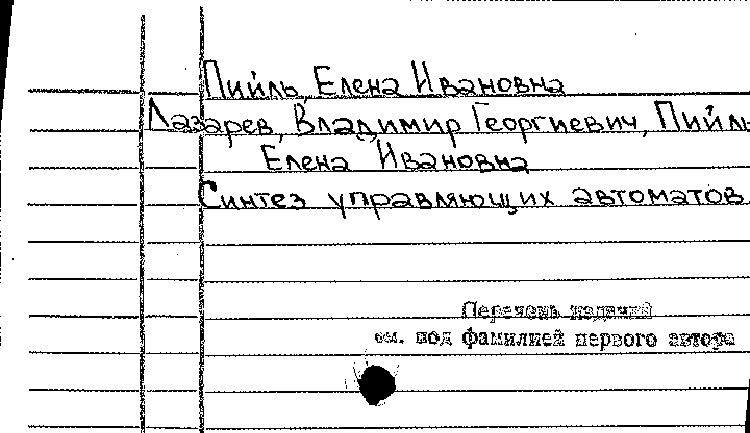 Пийль, Елена Ивановна
Лазарев, Владимир Георгиевич, Пийль
Елена Ивановна
Синтез управляющих автоматов
Перечень изданий
см. под фамилией первого автора